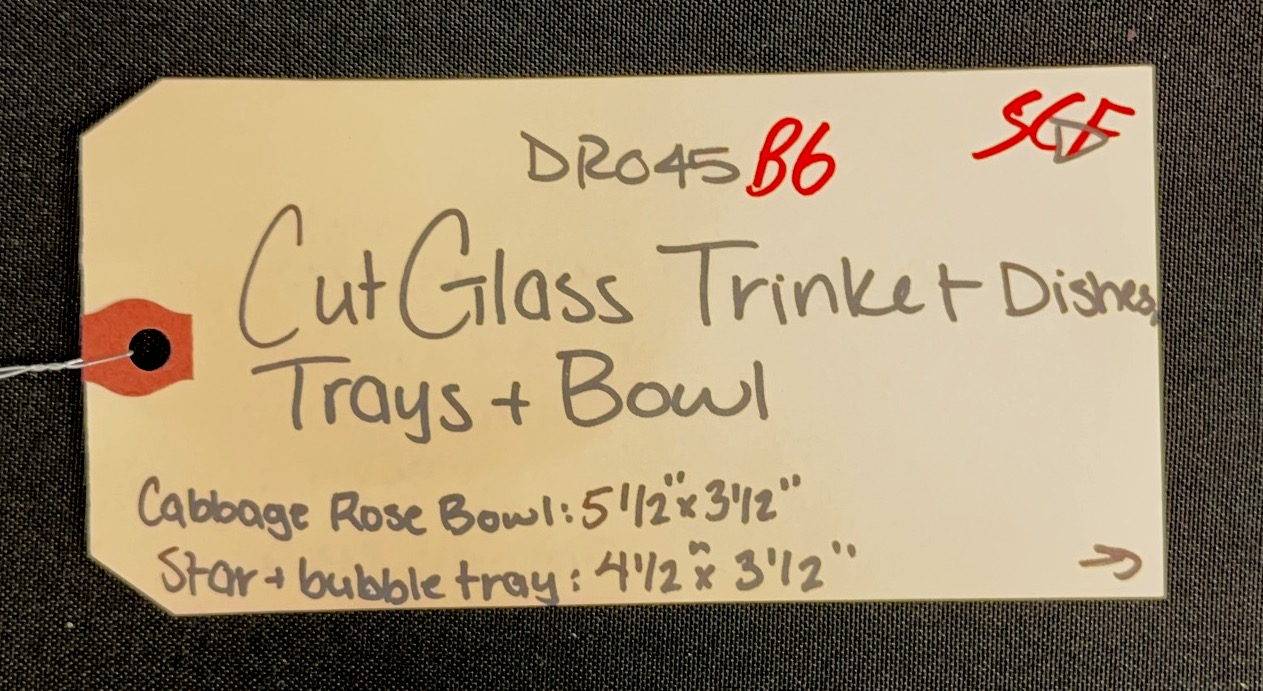 DR045 B6
Cut Glass Trinket Dishes,
Trays + Bowl
Cabbage Rose Bowl: 5 1/2" x 3 1/2"
Star + bubble tray: 4 1/2" x 3 1/2"
→